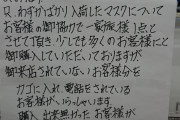 只、わずかばかり入荷したマスクについて
お客様の御協力で一家族様1点と
させて頂き、少しでも多くのお客様にと
御購入していただいておりますが
御来店されていないお客様分を
カゴに入れ電話をされている
お客様がいらっしゃいます。
購入出来無かったお客様が